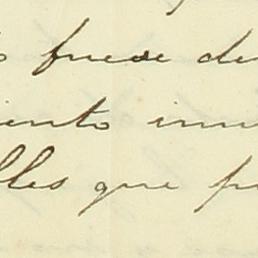 fuese de
iento inm
lles que pu